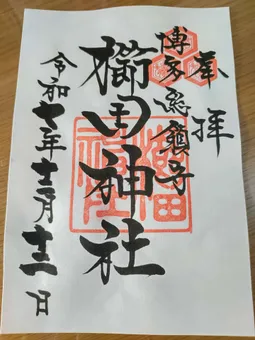 奉拝
博多総鎮守
櫛田神社
令和七年十二月十二日